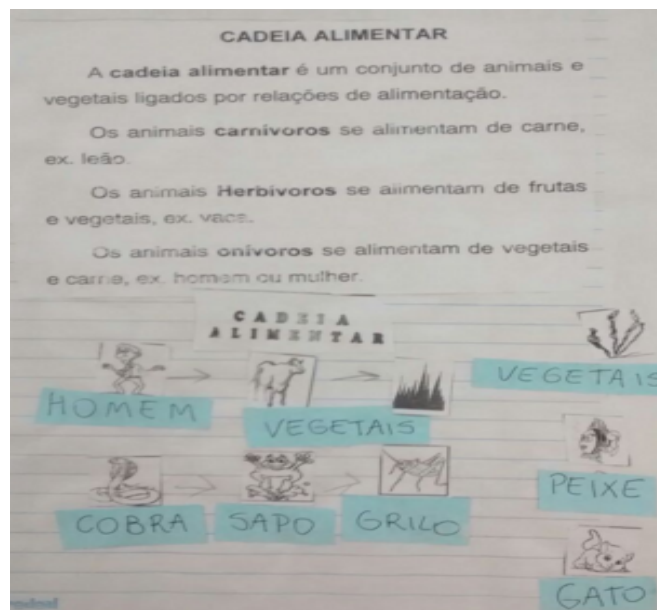 CADEIA ALIMENTAR
A cadeia alimentar é um conjunto de animais e
vegetais ligados por relações de alimentação.
Os animais carnívoros se alimentam de carne,
ex. leão.
Os animais Herbívoros se alimentam de frutas
e vegetais, ex. vaca.
Os animais onívoros se alimentam de vegetais
e carne, ex. homem ou mulher.
CADEIA
ALIMENTAR
VEGETAIS
HOMEM
VEGETAIS
PEIXE
COBRA SAPO GRILO
GATO